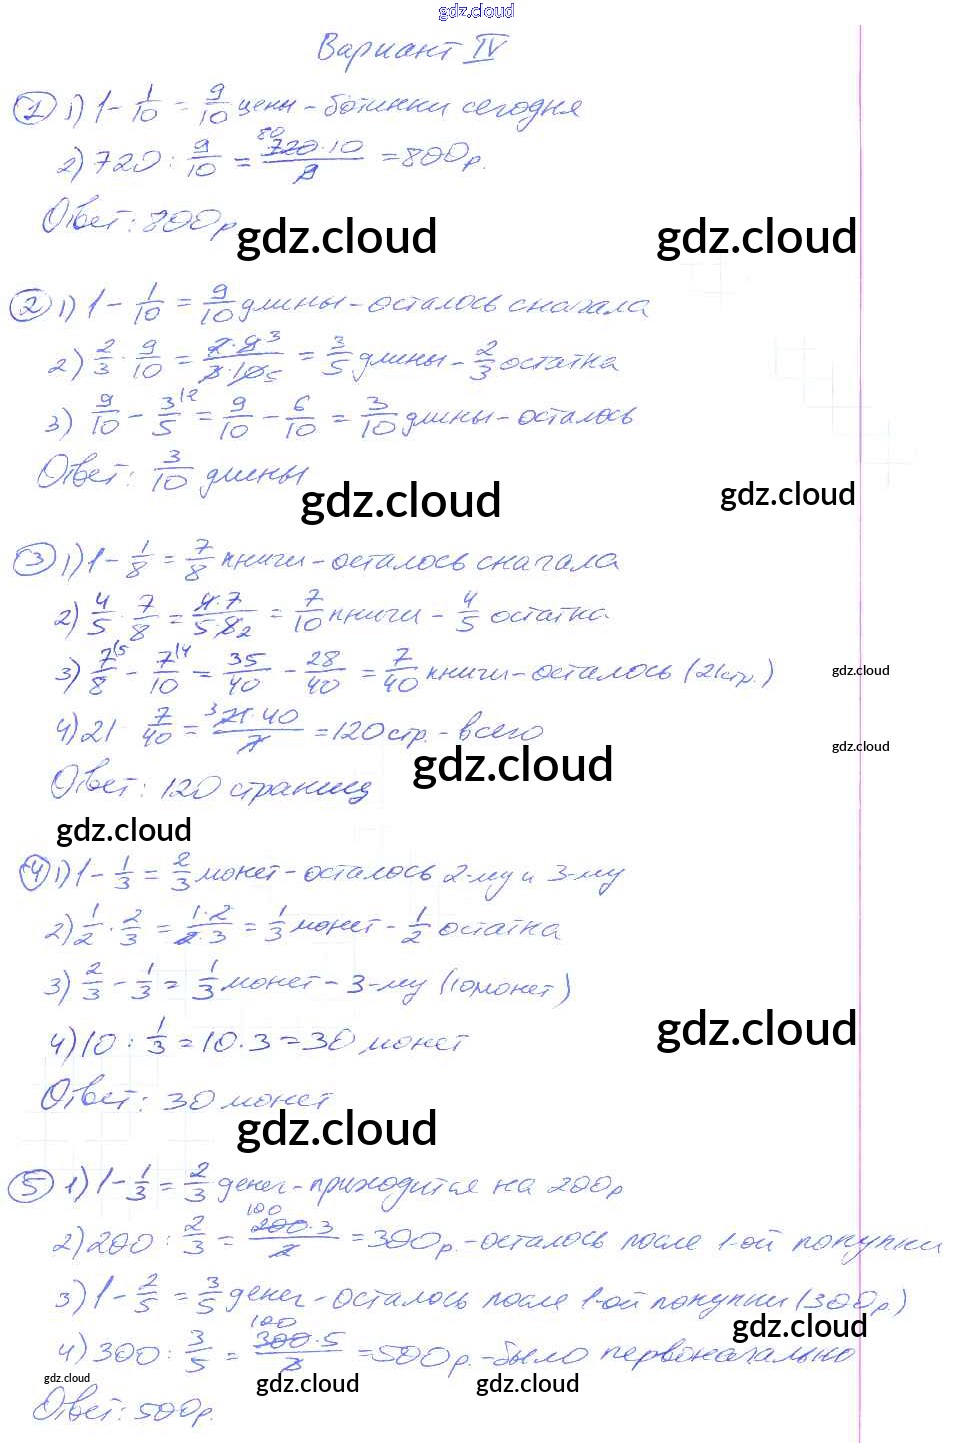 gdz.cloud
Вариант IV
1 1) 1 - 1/10 = 9/10 цены - ботинки сегодня
2) 720 : 9/10 = 720·10/9 80 = 800 р.
Ответ: 800 р
gdz.cloud gdz.cloud
2 1) 1 - 1/10 = 9/10 длины - осталось сначала
2) 2/3 · 9/10 = 2·9 3/3·10 5 = 3/5 длины - 2/3 остатка
3) 9/10 - 3/5 (2 = 9/10 - 6/10 = 3/10 длины - осталось
Ответ: 3/10 длины
gdz.cloud gdz.cloud
3 1) 1 - 1/8 = 7/8 книги - осталось сначала
2) 4/5 · 7/8 = 4·7/5·8 2 = 7/10 книги - 4/5 остатка
3) 7/8 (5 - 7/10 (4 = 35/40 - 28/40 = 7/40 книги - осталось (21 стр.)
gdz.cloud
4) 21 7/40 = 3 21·40/7 = 120 стр. - всего
gdz.cloud
gdz.cloud
Ответ: 120 страниц
gdz.cloud
4 1) 1 - 1/3 = 2/3 монет - осталось 2-му и 3-му
2) 1/2 · 2/3 = 1·2/2·3 = 1/3 монет - 1/2 остатка
3) 2/3 - 1/3 = 1/3 монет - 3-му (10 монет)
gdz.cloud
4) 10 : 1/3 = 10·3 = 30 монет
Ответ: 30 монет
gdz.cloud
5 1) 1 - 1/3 = 2/3 денег - приходится на 200 р
2) 200 : 2/3 = 200·3/2 100 = 300 р. - осталось после 1-ой покупки
3) 1 - 2/5 = 3/5 денег - осталось после 1-ой покупки (300 р.)
gdz.cloud
4) 300 : 3/5 = 300·5/3 100 = 500 р. - было первоначально
gdz.cloud gdz.cloud gdz.cloud
Ответ: 500 р.